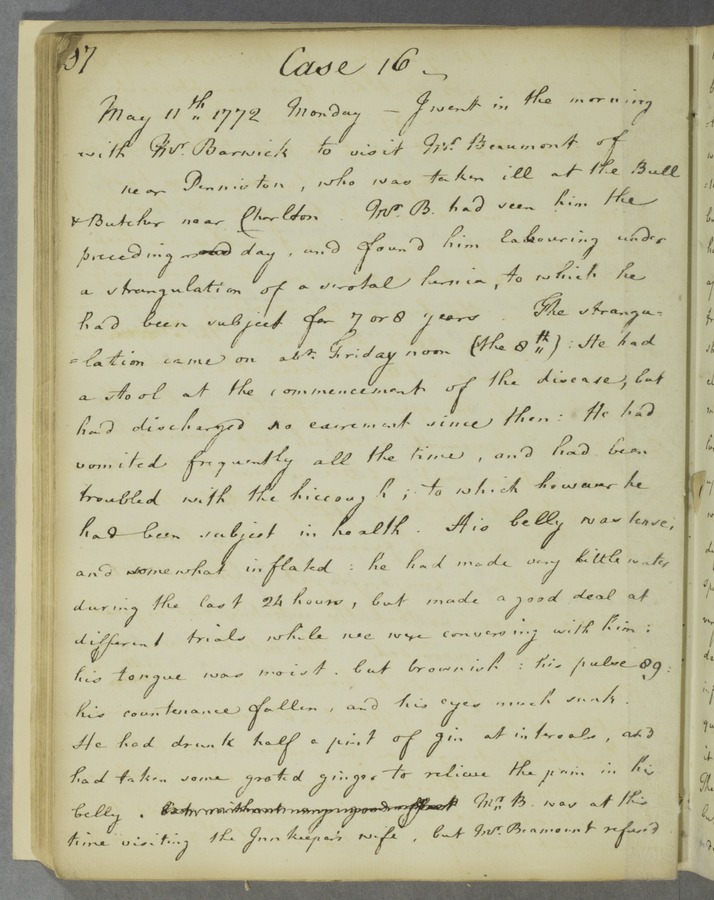 37
Case 16
May 11th 1772 Monday – I went in the morning
with Mr. Barwick to visit Mr. Beaumont of
near Penniston, who was taken ill at the Bull
& Butcher near Charlton. Mr. B. had seen him the
preceding day, and found him labouring under
a strangulation of a scrotal hernia, to which he
had been subject for 7 or 8 years. The strangu=
=lation came on abt. Friday noon (the 8th): He had
a stool at the commencement of the disease, but
had discharged no excrement since then: He had
vomited frequently all the time, and had been
troubled with the hiccough; to which however he
had been subject in health. His belly was tense,
and somewhat inflated: he had made very little water
during the last 24 hours, but made a good deal at
different trials while we were conversing with him:
his tongue was moist, but brownish: his pulse 89:
his countenance fallen, and his eyes much sunk.
He had drunk half a pint of gin at intervals, and
had taken some grated ginger to relieve the pain in his
belly. Mr. B. was at this
time visiting the Innkeeper's wife, but Mr. Beamount refused